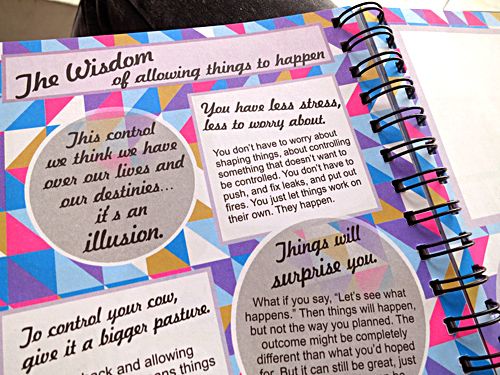 The Wisdom
of allowing things to happen
This control
we think we have
over our lives and
our destinies...
it's an
illusion.
You have less stress,
less to worry about.
You don't have to worry about
shaping things, about controlling
something that doesn't want to
be controlled. You don't have to
push, and fix leaks, and put out
fires. You just let things work on
their own. They happen.
To control your cow,
give it a bigger pasture.
back and allowing
things
Things will
surprise you.
What if you say, "Let's see what
happens." Then things will happen,
but not the way you planned. The
outcome might be completely
different than what you'd hoped
for. But it can still be great, just